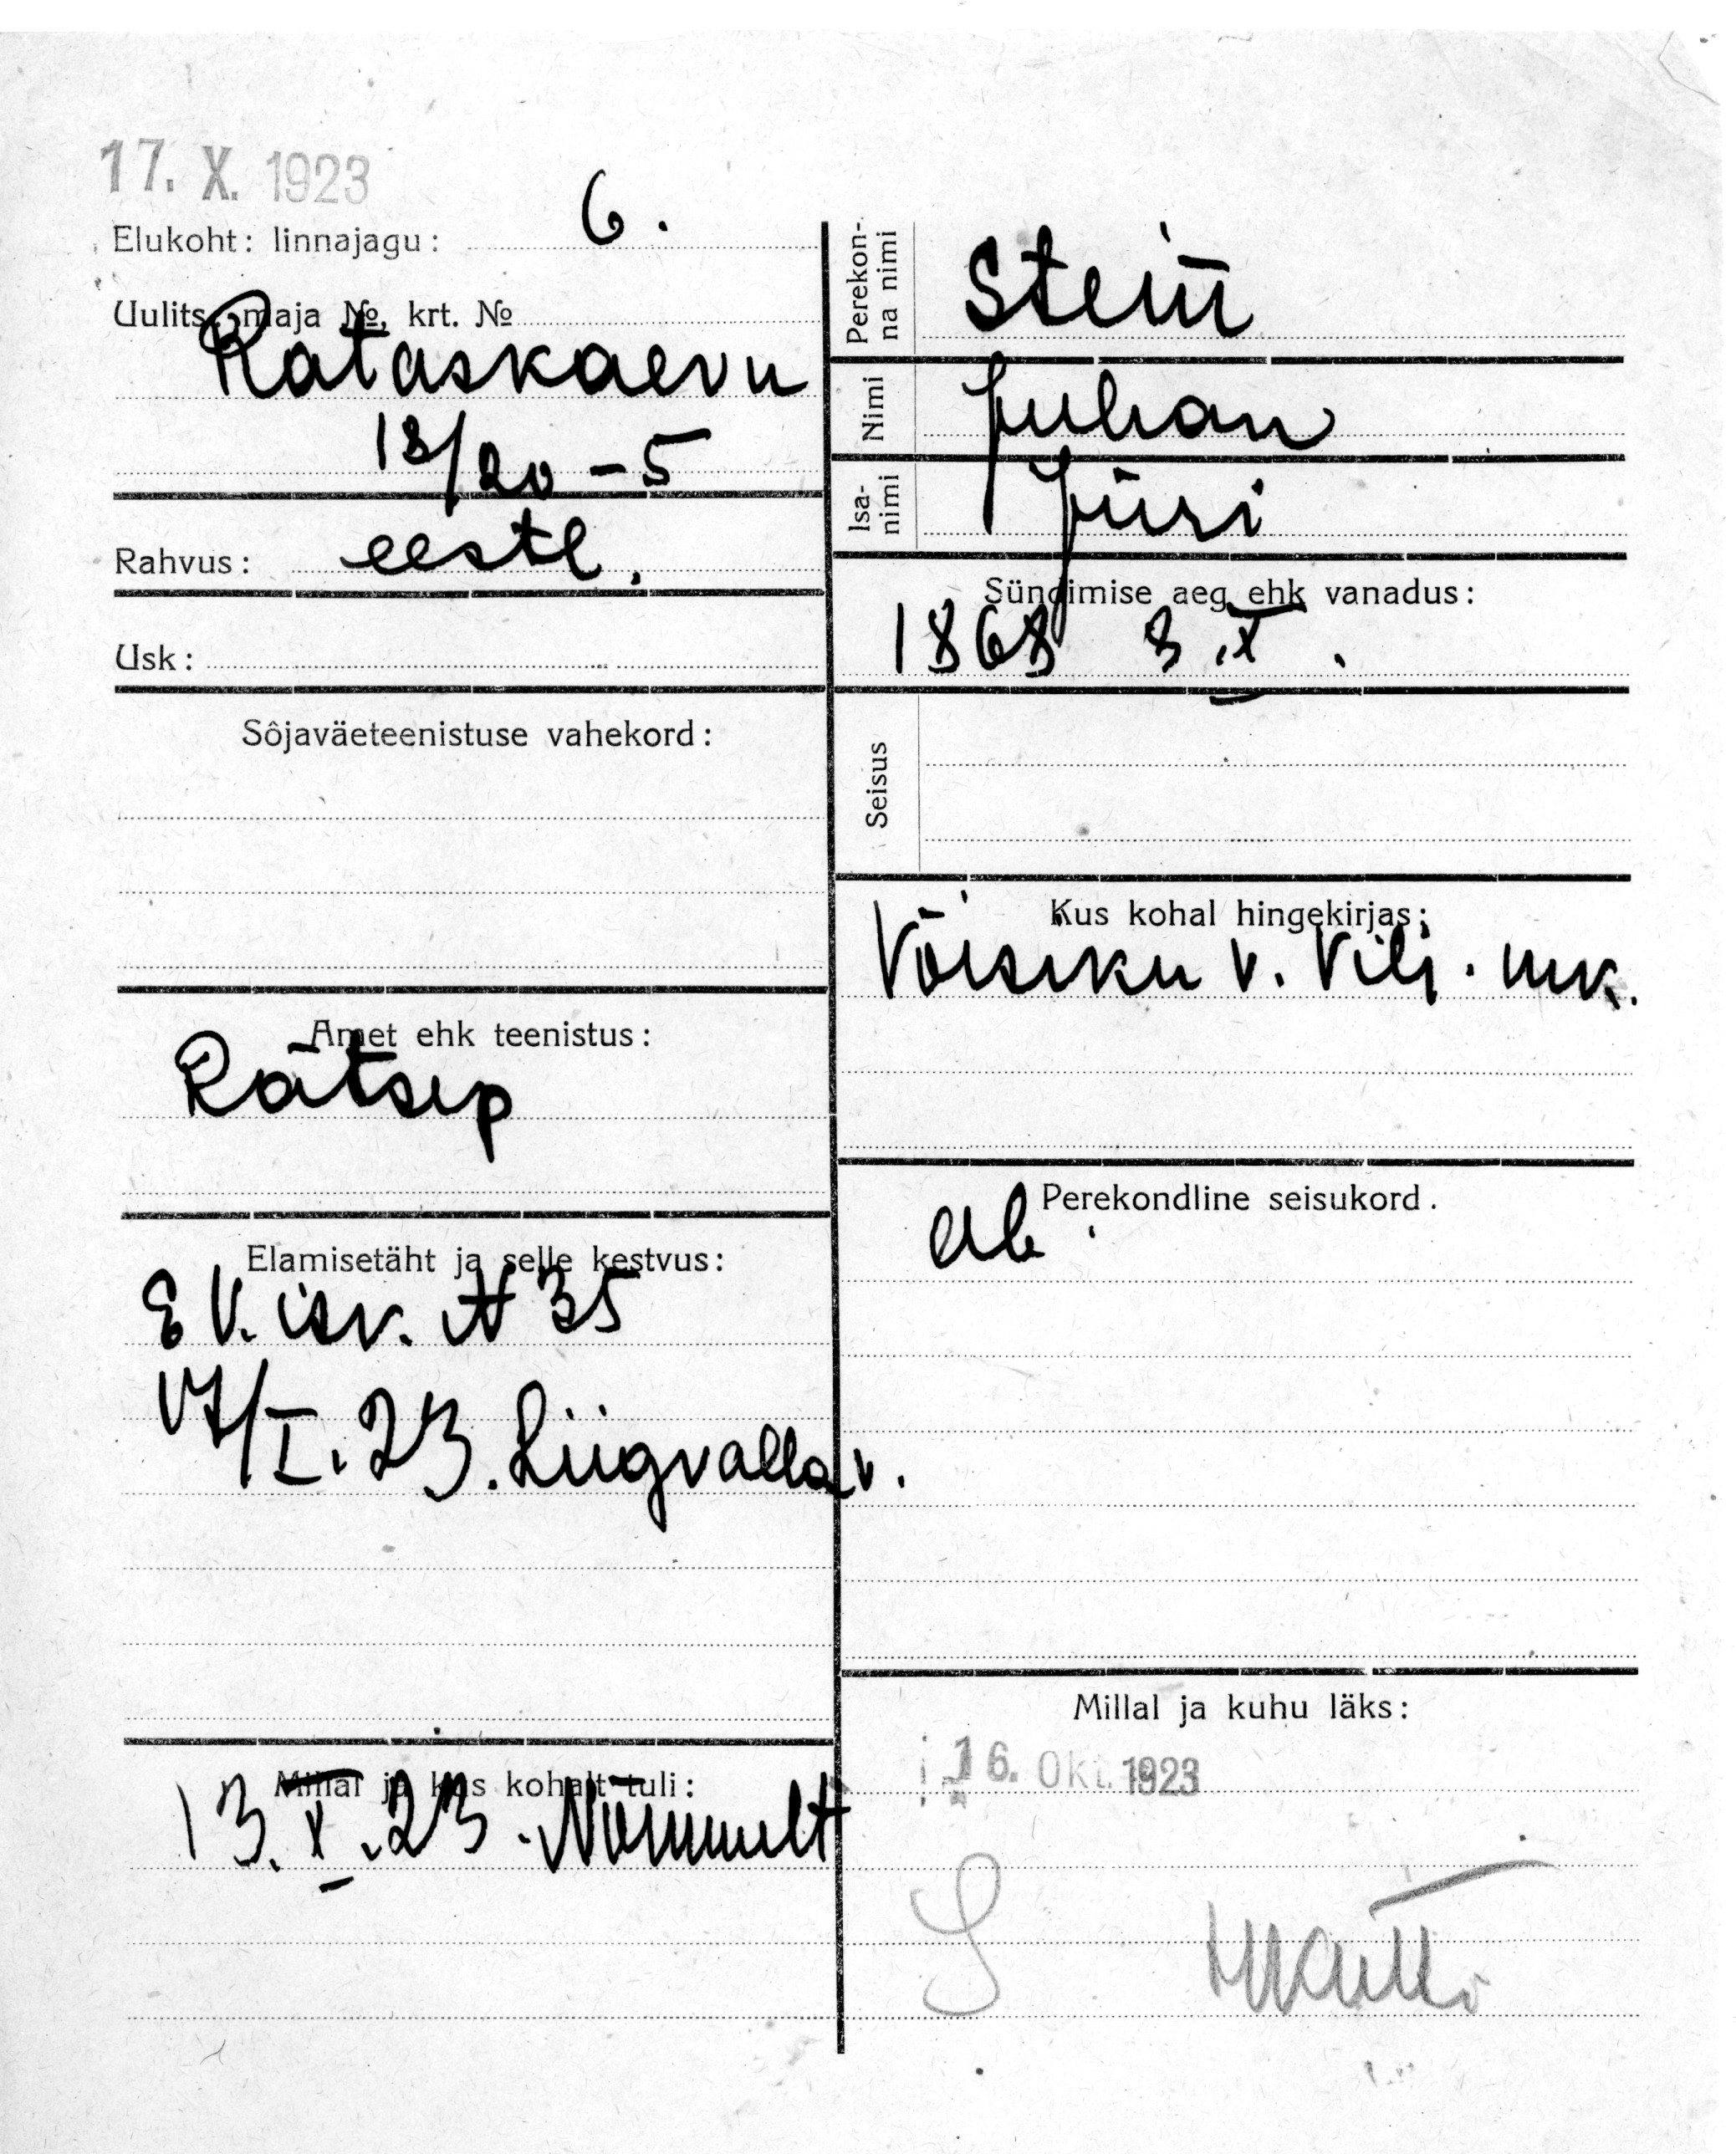 17. X. 1923
Elukoht: linnajagu: 6.
Uulits, maja №, krt. №
Rataskaevu
18/20 – 5
Rahvus: eestl.
Usk:
Sôjaväeteenistuse vahekord:
Amet ehk teenistus:
Rätsep
Elamisetäht ja selle kestvus:
E V. isv. № 35
17/I. 23. Liigvalla v.
Millal ja kus kohalt tuli:
13. X. 23. Nõmmelt
Perekonna nimi Stein
Nimi Juhan
Isanimi Jüri
Sündimise aeg ehk vanadus:
1868 8. X.
Seisus
Kus kohal hingekirjas:
Võisiku v. Vilj. mk.
Perekondline seisukord.
ab.
Millal ja kuhu läks:
16. Okt. 1923